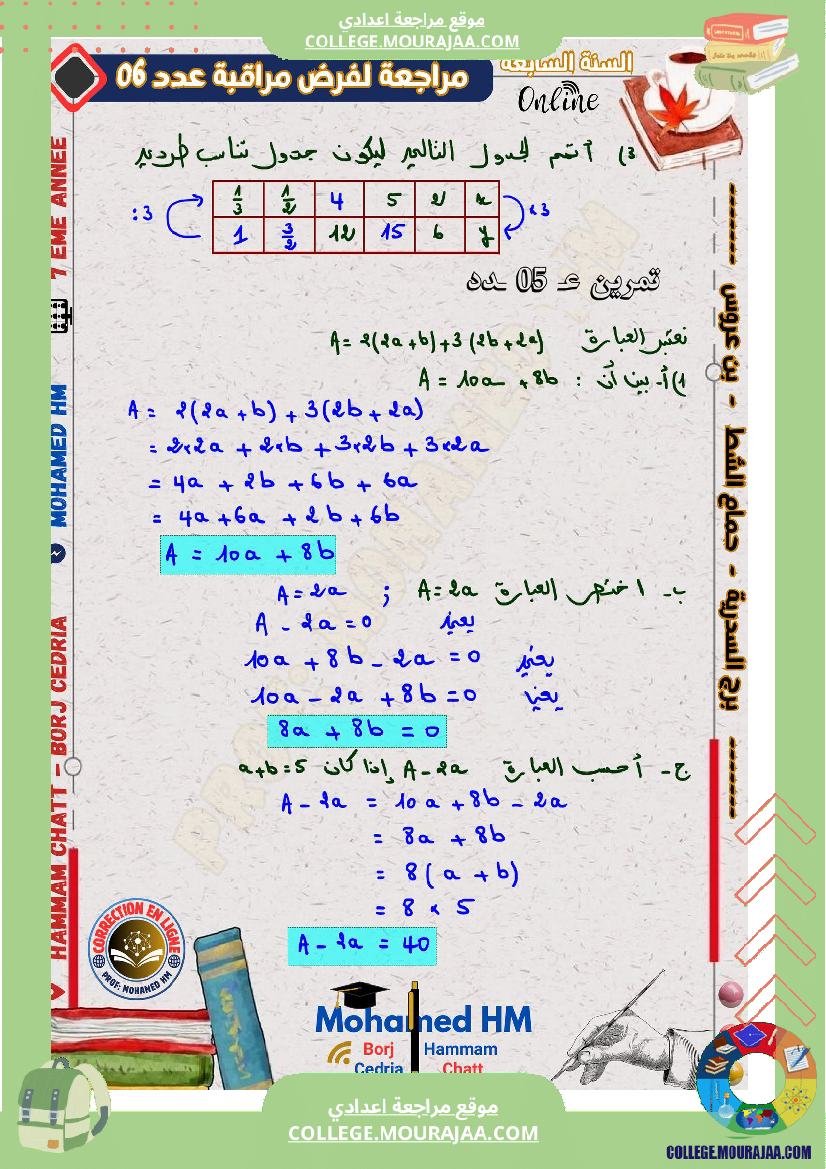 موقع مراجعة اعدادي
COLLEGE.MOURAJAA.COM
السنة السابعة
مراجعة لفرض مراقبة عدد 06
Online
3) أتمم الجدول التالي ليكون جدول تناسب طردي
1/3 1/2 4 5 2 x
1 3/2 12 15 6 y
:3
×3
تمرين عـ 05 ـدد
نعتبر العبارة A = 2(2a+b)+3(2b+2a)
1) أ- بين أن : A = 10a + 8b
A = 2(2a+b)+3(2b+2a)
= 2×2a + 2×b + 3×2b + 3×2a
= 4a + 2b + 6b + 6a
= 4a+6a + 2b+6b
A = 10a + 8b
ب- اختصر العبارة A=2a ; A=2a
يعني A - 2a = 0
يعني 10a + 8b - 2a = 0
يعني 10a - 2a + 8b = 0
8a + 8b = 0
ج- أحسب العبارة A - 2a إذا كان a+b=5
A - 2a = 10a + 8b - 2a
= 8a + 8b
= 8(a + b)
= 8 × 5
A - 2a = 40
HAMMAM CHATT - BORJ CEDRIA
MOHAMED HM
7 EME ANNEE
برج السدرية - حمام الشط - بن عروس
PROF: MOHAMED HM
CORRECTION EN LIGNE
PROF: MOHAMED HM
Mohamed HM
Borj Hammam
Cedria Chatt
موقع مراجعة اعدادي
COLLEGE.MOURAJAA.COM
COLLEGE.MOURAJAA.COM